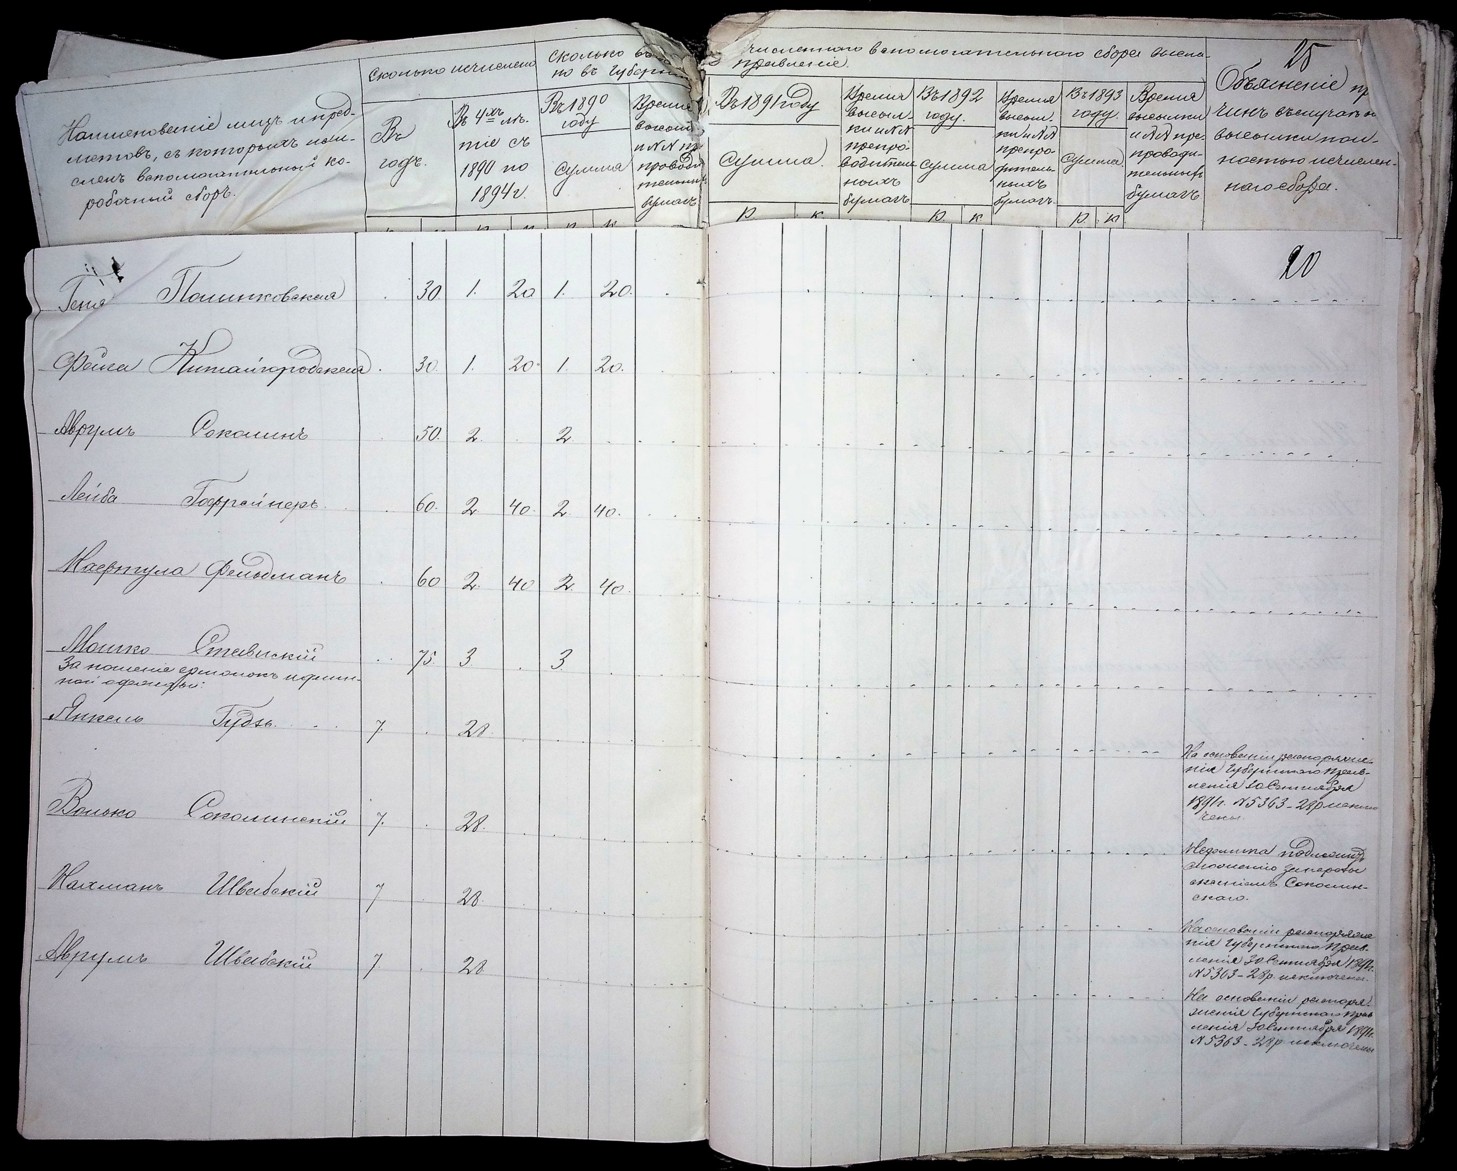 25
Наименованіе лицъ и пред-
метовъ, съ которыхъ исчи-
сленъ вспомогательный ко-
робочный сборъ.
Сколько исчислено
Въ
годъ.
Въ 4хъ лѣ-
тіе съ
1890 по
1894 г.
Сколько въ
но въ Губерн
Въ 1890
году
Сумма
Время
высыл
и №№ пр
провод
тельн
бумагъ
численнаго вспомогательнаго сбора
правленіе.
Въ 1891 году
Сумма.
Время
высыл-
ки и №№
препро-
водитель
ныхъ
бумагъ
Въ 1892
году.
Сумма
Время
высыл-
ки и №№
препро
дитель
ныхъ
бумагъ.
Въ 1893
году.
Сумма
Время
высылки
и №№ пре-
проводи-
тельныхъ
бумагъ
Объясненіе пр
чинъ въ случаѣ н
высылки пол-
ностью исчислен-
наго сбора.
р к р к р к
20
Геня Полинковская 30 1. 20 1. 20.
Фейга Китайгородская 30. 1. 20 1. 20.
Аврумъ Соколинъ 50. 2 2
Лейба Гофрайнеръ 60. 2 40. 2 40.
Фельдманъ 60 2 40 2. 40.
Мошко Ставискій 75. 3 3.
За ношеніе ермолокъ и
ной одежды:
Янкель Гудзь 7. 28
На основаніи распоряже-
нія Губернскаго Прав-
ленія 30 Сентября
1891 г. №5363 - 28 р исклю
чены.
Волько Соколинскій 7. 28.
Недоимка подлежитъ
сложенію за
Соколин-
скаго.
Нахманъ Швабскій 7 28
На основаніи распоряже
нія Губернскаго Прав-
ленія 30 Сентября 1891 г.
№5363 - 28 р. исключены.
Аврумъ Швабскій 7 28
На основаніи распоря-
женія Губернскаго Прав
ленія 30 Сентября 1891 г.
№5363 - 28 р исключены